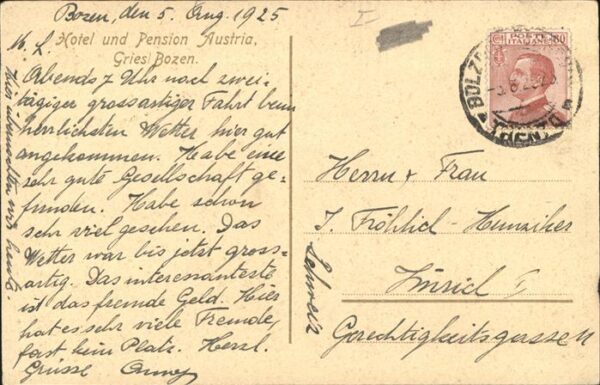 Bozen, den 5. Aug. 1925
Hotel und Pension Austria,
Gries Bozen.
M. L.
Abends 7 Uhr nach zwei-
tägiger grossartiger Fahrt beim
herrlichsten Wetter hier gut
angekommen. Habe eine
sehr gute Gesellschaft ge-
funden. Habe schon
sehr viel gesehen. Das
Wetter war bis jetzt gross-
artig. Das interessanteste
ist das fremde Geld. Hier
hat es sehr viele Fremde,
fast kein Platz. Herzl.
Grüsse
Hier übernachten wir heute.
I
POSTE ITALIANE
80
BOLZ
(TRENTO)
Herrn + Frau
J. Fröhlich-Hunziker
Zürich I
Gerechtigkeitsgasse 4
Schweiz